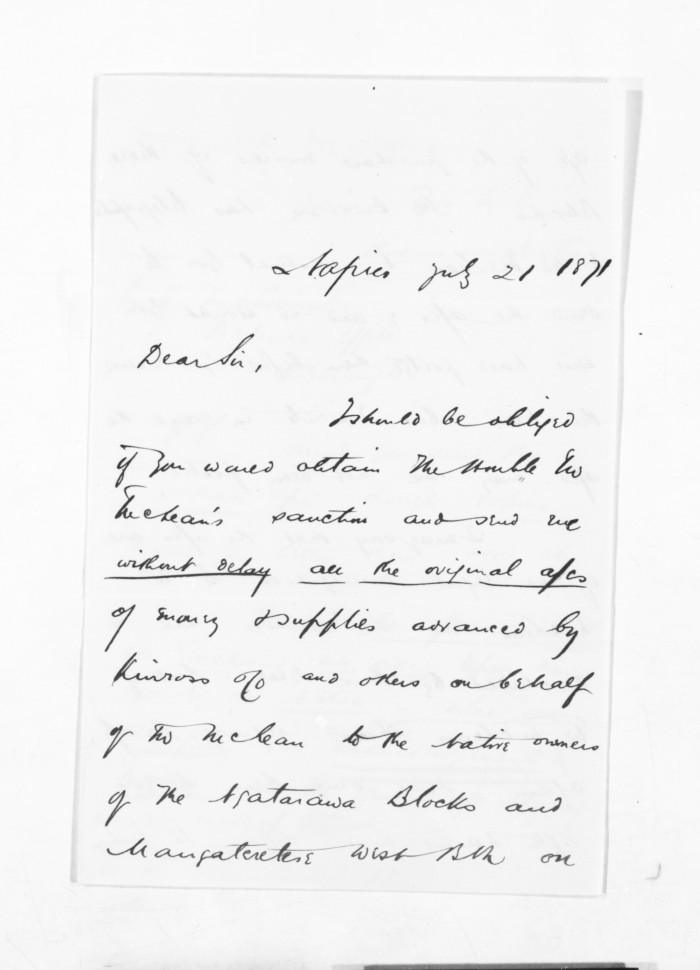 Napier July 21 1871
Dear Sir,
I should be obliged
if you would obtain the Honble Mr
McLean's sanction and send me
without delay all the original a/cs
of money & supplies advanced by
Kinross & Co and others on behalf
of Mr McLean to the Native owners
of the Ngatarawa Blocks and
Mangateretere West Blk on